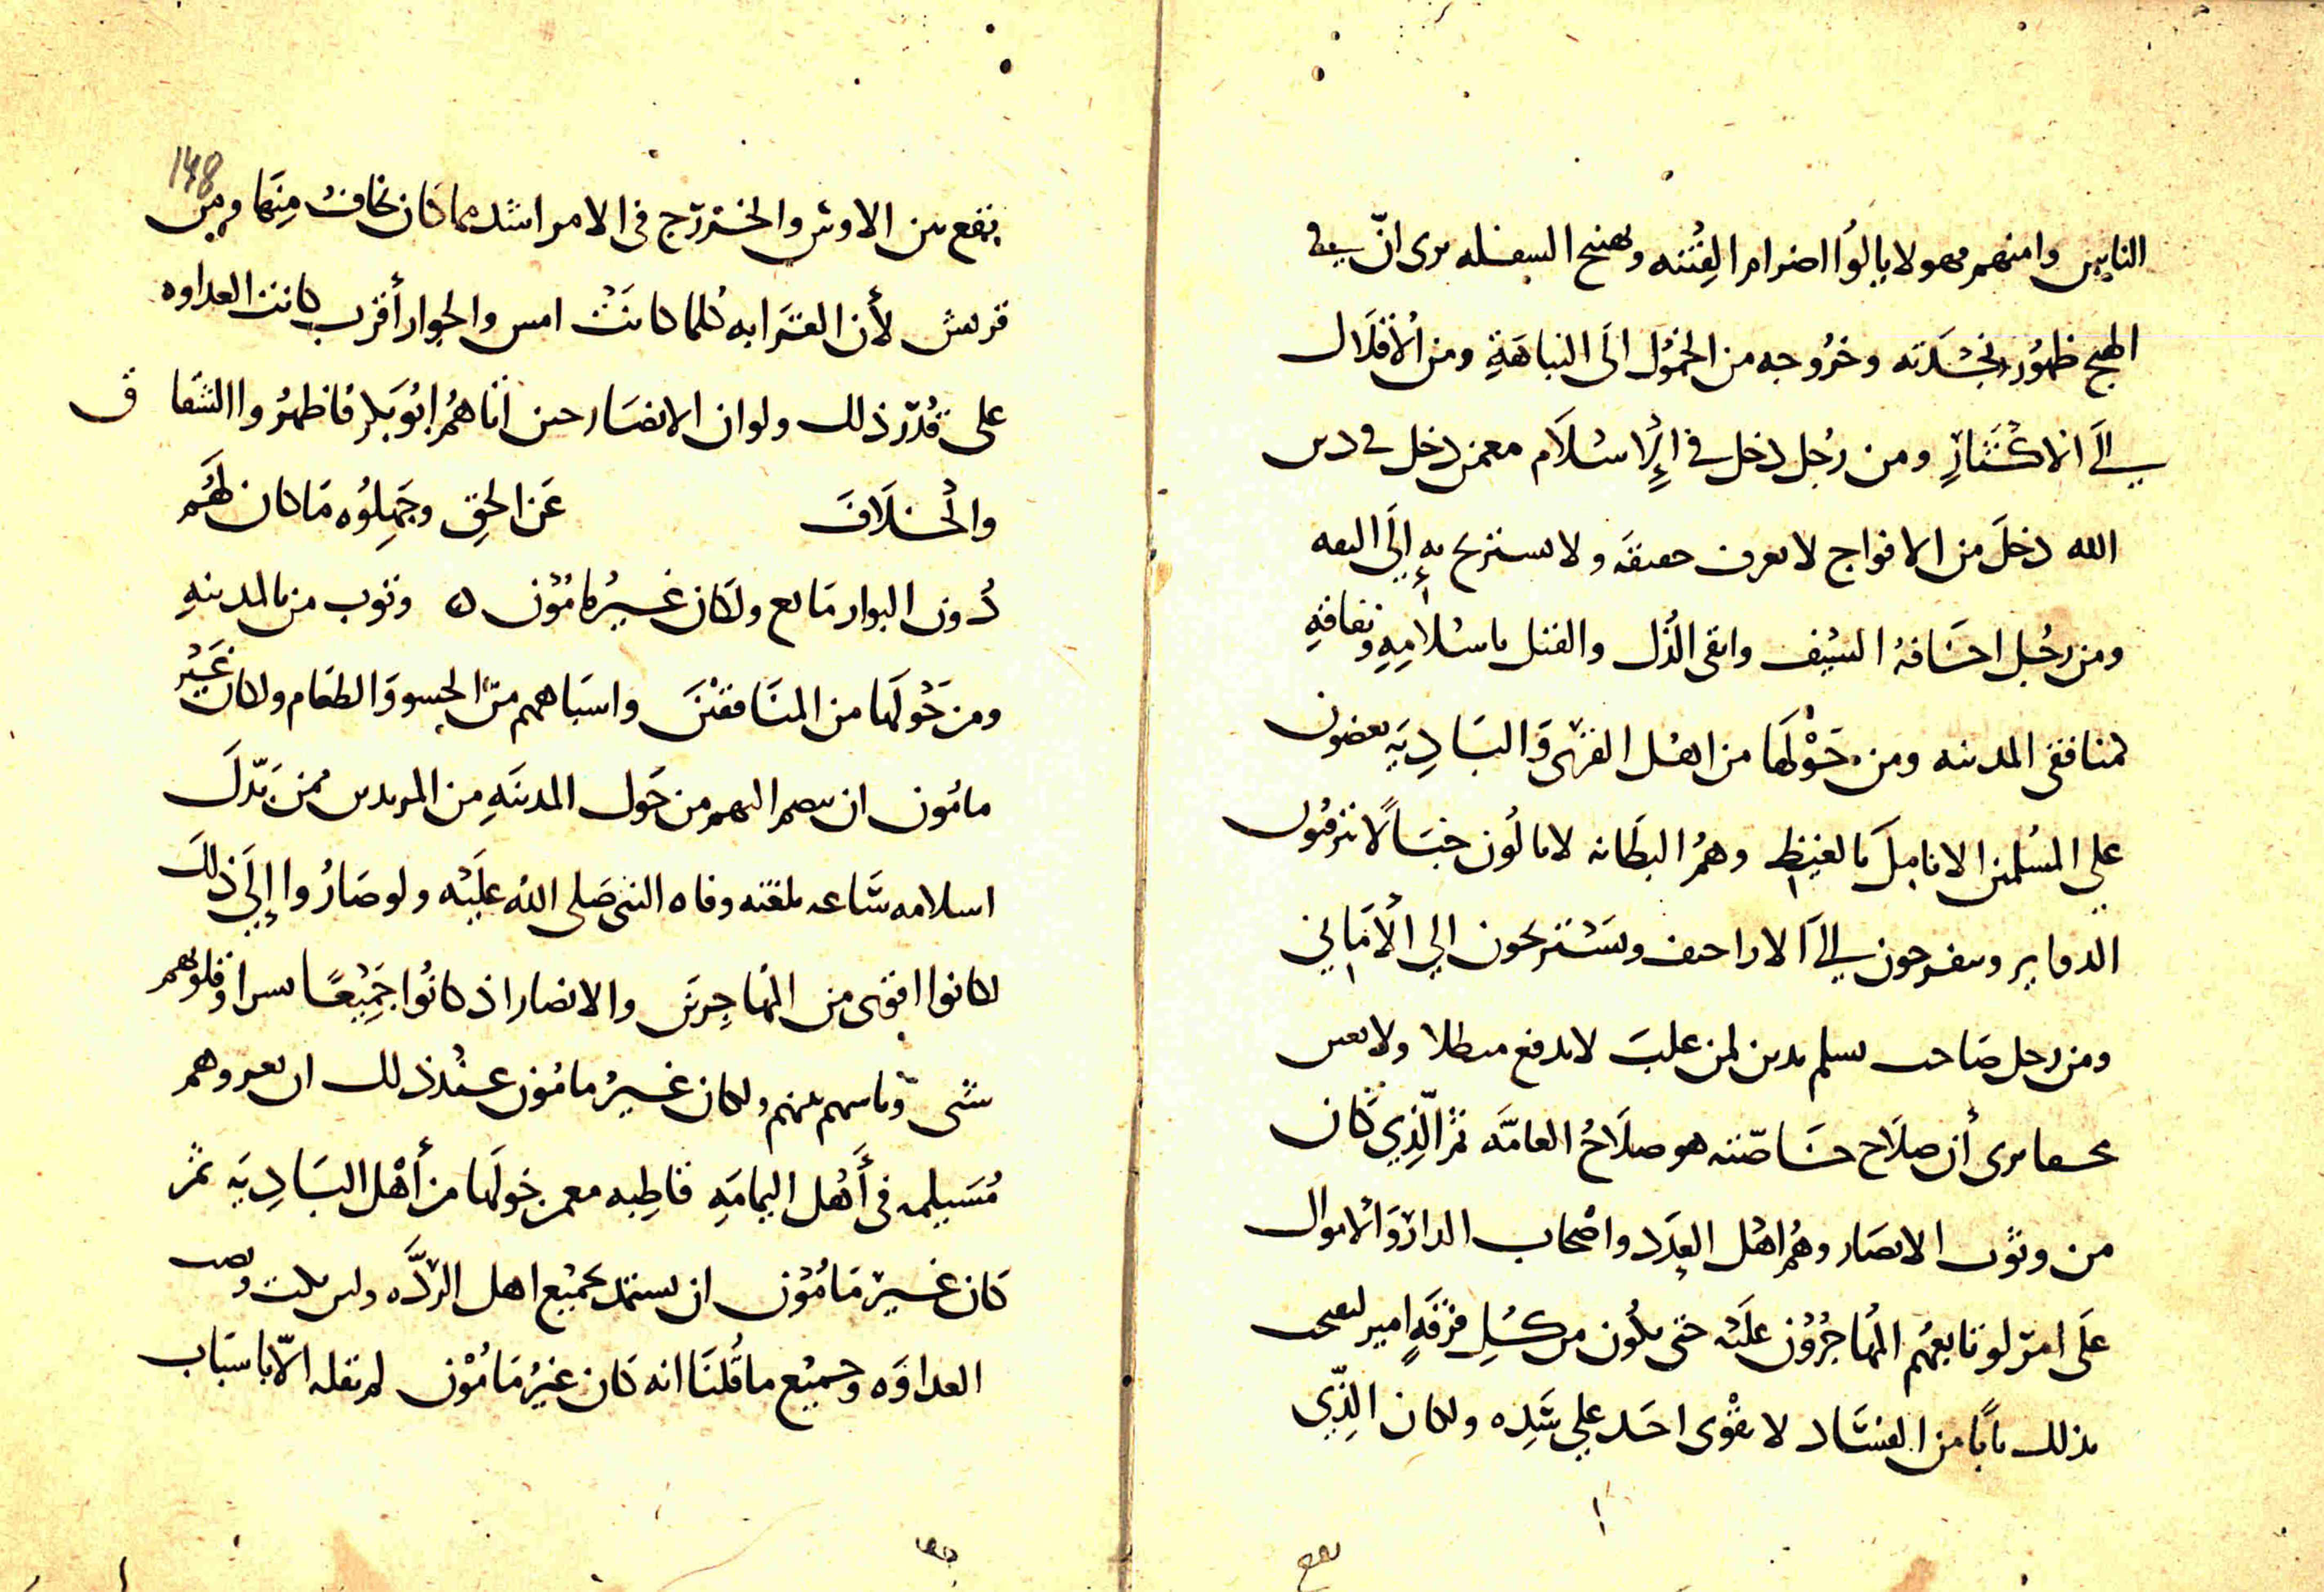 الناس وامنهم مهولا يالوا اضرام الفتنه وتهييج السفله يرى ان في
الهيج ظهور نجدته وخروجه من الخمول الى النباهة ومن الاقلال
الى الاكثار ومن رجل دخل في الإسلام معمن دخل في دين
الله دخل من الافواج لا يعرف حقيقه ولا يستريح به إلى الثقه
ومن رجل اخافه السيف واتقى الذل والقتل باسلامه ونفاقه
لمنافقى المدينه ومن حولها من اهل القرى والباديه يعضون
على المسلمين الانامل بالغيظ وهم البطانه لا يالون خبالا يترقبون
الدواير ويفرحون الى الاراجيف ويستريحون الي الأماني
ومن رجل صاحب يسلم يدين لمن غلب لا يدفع مبطلا ولا يعين
محقا يرى أن صلاح خاصته هو صلاح العامه ثم الذي كان
من وثوب الانصار وهم اهل العدد واصحاب الدار والاموال
على امر لو تابعهم المهاجرون عليه حتى يكون من كل فرقة امير لفتحت
بذلك بابا من الفساد لا يقوى احد علي سده ولكان الذي
يقع
148
يقع بين الاوس والخزرج في الامر اشد مما كان يخاف منها ومن
قريش لأن القرابه كلما كانت امس والجوار أقرب كانت العداوه
على قدر ذلك ولو ان الانصار حين اتاهم ابو بكر فاظهروا الشقاق
والخلاف عن الحق وجهلوه ما كان لهم
دون البوار مانع ولكان غير مامون وثوب من بالمدينه
ومن حولها من المنافقين واشباههم من الحشو والطغام ولكان غير
مامون ان ينضم اليهم من حول المدينه من المرتدين ممن بدل
اسلامه ساعه بلغته وفاه النبى صلى الله عليه ولو صاروا إلى ذلك
لكانوا اقوى من المهاجرين والانصار اذ كانوا جميعا نشرا وقلوبهم
شتى وباسهم بينهم ولكان غير مامون عند ذلك ان يغزوهم
مسيلمه في أهل اليمامه قاطبه معمن حولها من أهل الباديه ثم
كان غير مامون ان يستمد بجميع اهل الرده ولمن يكن ونصب
العداوه وجميع ما قلنا انه كان غير مامون لم نقله الا باسباب